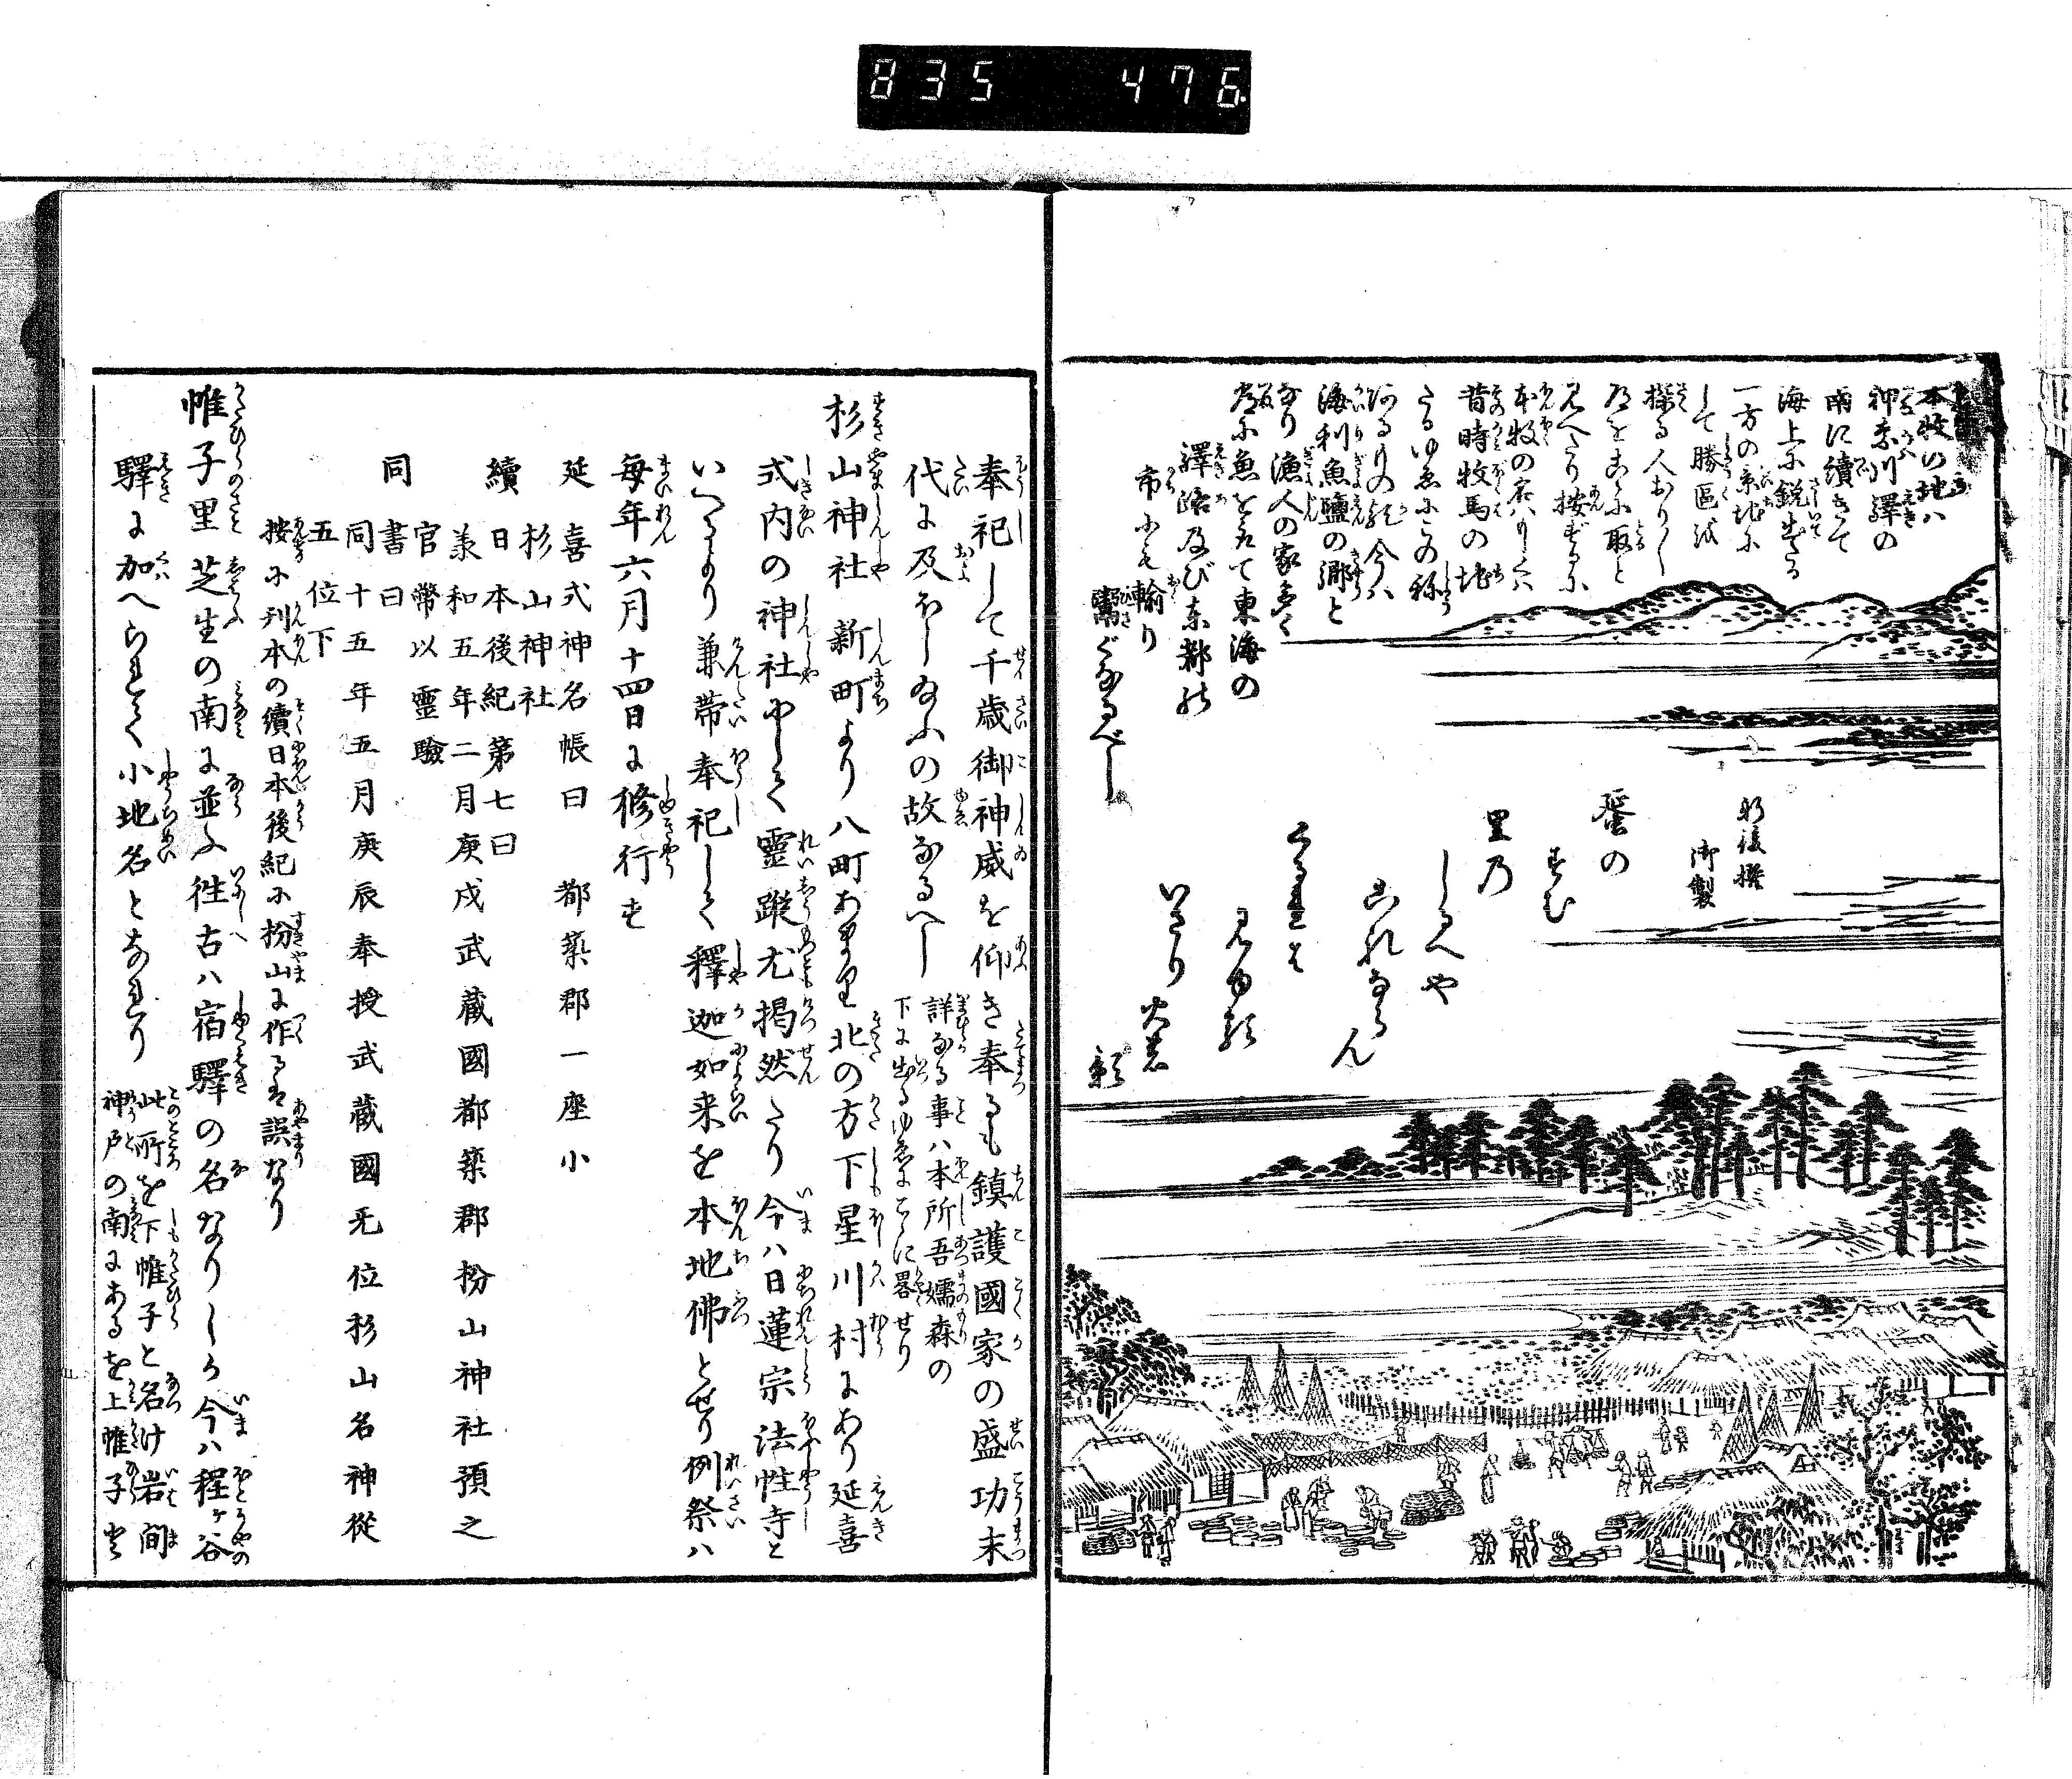 835 476
本牧の地ハ
神奈川驛の
南に續きて
海上に鋭出たる
一方の景地に
して勝區を
探る人おりく
道をこゝに取と
見へたり按ずるに
本牧の名ハもしくハ
昔時牧馬の地
たるゆゑにこの称
海利魚鹽の郷と
なり漁人の家多く
常に魚を
驛路及び東都の
市にも輸り
鬻ぐなるべし
新後撰
御製
蜑の
すむ
里乃
しるへや
これならん
くるれは
見ゆる
いさり火の
影
奉祀して千歳御神威を仰き奉るも鎮護國家の盛功末
代に及ほし給ふの故なるへし
詳なる事ハ本所吾嬬森の
下に出るゆゑにこゝに畧せり
杉山神社 新町より八町あまり北の方下星川村にあり延喜
式内の神社にして靈蹤尤掲然たり今ハ日蓮宗法性寺と
いへるより兼帶奉祀して釋迦如来を本地佛とせり例祭ハ
毎年六月十四日に修行す
延喜式神名帳曰 都築郡一座小
杉山神社
續日本後紀第七曰
羕和五年二月庚戌武藏國都築郡枌山神社預之
官幣以靈驗
同書曰
同十五年五月庚辰奉授武藏國无位杉山名神從
五位下
按に刋本の續日本後紀に枌山に作るは誤なり
帷子里 芝生の南に並ふ徃古ハ宿驛の名なりしか今ハ程ヶ谷
驛に加へられて小地名となれり
此所を下帷子と名け岩間
神戸の南にあるを上帷子